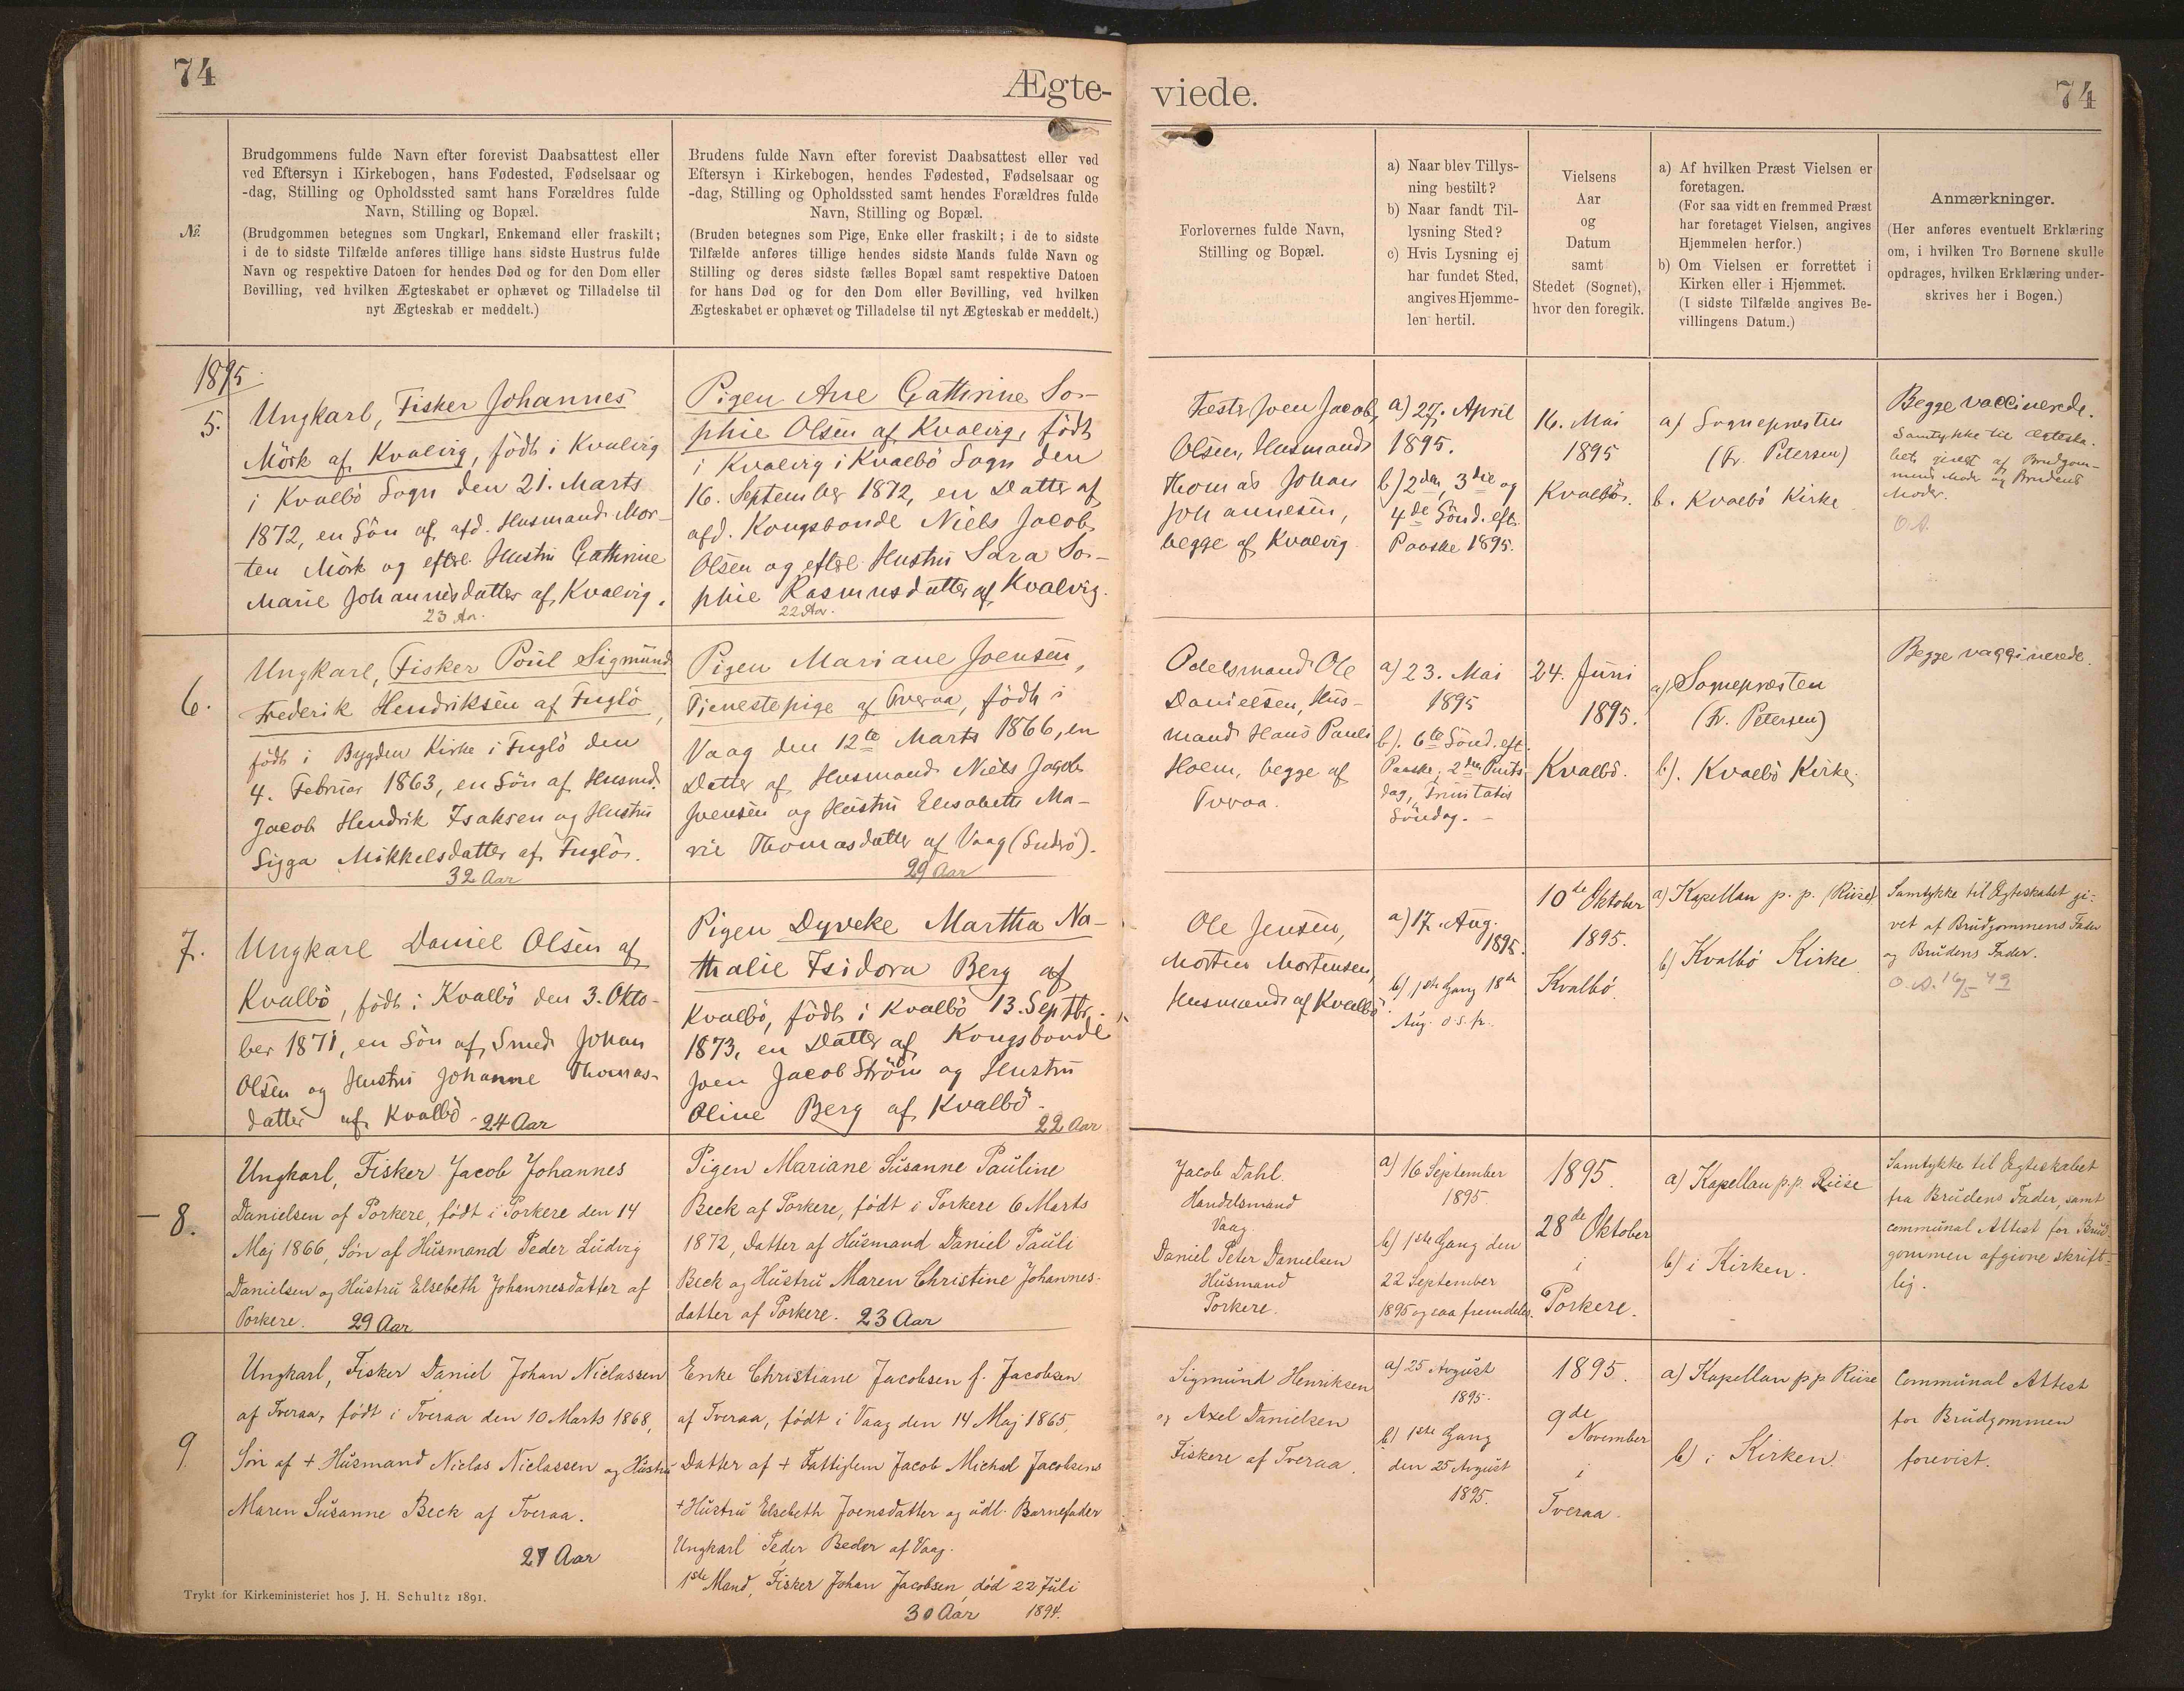 74
Ægte-
viede.
74
№
Brudgommens fulde Navn efter forevist Daabsattest eller
ved Eftersyn i Kirkebogen, hans Fødested, Fødselsaar og
-dag, Stilling og Opholdssted samt hans Forældres fulde
Navn, Stilling og Bopæl.
(Brudgommen betegnes som Ungkarl, Enkemand eller fraskilt;
i de to sidste Tilfælde anføres tillige hans sidste Hustrus fulde
Navn og respektive Datoen for hendes Død og for den Dom eller
Bevilling, ved hvilken Ægteskabet er ophævet og Tilladelse til
nyt Ægteskab er meddelt.)
Brudens fulde Navn efter forevist Daabsattest eller ved
Eftersyn i Kirkebogen, hendes Fødested, Fødselsaar og
-dag, Stilling og Opholdssted samt hendes Forældres fulde
Navn, Stilling og Bopæl.
(Bruden betegnes som Pige, Enke eller fraskilt; i de to sidste
Tilfælde anføres tillige hendes sidste Mands fulde Navn og
Stilling og deres sidste fælles Bopæl samt respektive Datoen
for hans Død og for den Dom eller Bevilling, ved hvilken
Ægteskabet er ophævet og Tilladelse til nyt Ægteskab er meddelt.)
Forlovernes fulde Navn,
Stilling og Bopæl.
a) Naar blev Tillys-
ning bestilt?
b) Naar fandt Til-
lysning Sted?
c) Hvis Lysning ej
har fundet Sted,
angives Hjemme-
len hertil.
Vielsens
Aar
og
Datum
samt
Stedet (Sognet),
hvor den foregik.
a) Af hvilken Præst Vielsen er
foretagen.
(For saa vidt en fremmed Præst
har foretaget Vielsen, angives
Hjemmelen herfor.)
b) Om Vielsen er forrettet i
Kirken eller i Hjemmet.
(I sidste Tilfælde angives Be-
villingens Datum.)
Anmærkninger.
(Her anføres eventuelt Erklæring
om, i hvilken Tro Børnene skulle
opdrages, hvilken Erklæring under-
skrives her i Bogen.)
1895
5.
Ungkarl, Fisker Johannes
Mörk af Kvalvig, födt i Kvalvig
i Kvalbö Sogn den 21. Marts
1872, en Sön af afd. Husmand Mor-
ten Mörk og eftl. Hustru Cathrine
Marie Johannesdatter af Kvalvig.
23 Aar.
Pigen Ane Cathrine So-
phie Olsen af Kvalvig, födt
i Kvalvig i Kvalbö Sogn den
16. September 1872, en Datter af
afd. Kongsbonde Niels Jacob
Olsen og eftl. Hustru Sara So-
phie Rasmusdatter af Kvalvig.
22 Aar.
Fæster Joen Jacob
Olsen, Husmand
Thomas Johan
Johannesen,
begge af Kvalvig
a) 27. April
1895.
b) 2den, 3die og
4de Sönd. eft.
Paaske 1895.
16. Mai
1895
Kvalbö.
a) Sognepræsten
(Fr. Petersen)
b. Kvalbö Kirke
Begge vaccinerede.
Samtykke til Ægteska-
bet givet af Brudgom-
mens Moder og Brudens
Moder.
6.
Ungkarl, Fisker Poul Sigmund
Frederik Hendriksen af Fuglö,
födt i Bygden Kirke i Fuglö den
4. Februar 1863, en Sön af Husmd.
Jacob Hendrik Isaksen og Hustru
Sigga Mikkelsdatter af Fuglö.
32 Aar
Pigen Mariane Joensen,
Tjenestepige af Tveraa, födt i
Vaag den 12te Marts 1866, en
Datter af Husmand Niels Jacob
Joensen og Hustru Elisabeth Ma-
rie Thomasdatter af Vaag (Suderö).
29 Aar
Odelsmand Ole
Danielsen, Hus-
mand Hans Pauli
Holm, begge af
Tveraa.
a) 23. Mai
1895
b). 6te Sönd. eft.
Paaske, 2den Pints-
dag, Trinitatis
Söndag.
24. Juni
1895.
Kvalbö.
a) Sognepræsten
(Fr. Petersen)
b). Kvalbö Kirke.
Begge vaccinerede.
7.
Ungkarl Daniel Olsen af
Kvalbö, födt i Kvalbö den 3. Okto-
ber 1871, en Sön af Smed Johan
Olsen og Hustru Johanne Thomas-
datter af Kvalbö. 24 Aar
Pigen Dyveke Martha Na-
thalie Isidora Berg af
Kvalbö, födt i Kvalbö 13. Septbr.
1873, en Datter af Kongsbonde
Joen Jacob Ström og Hustru
Oline Berg af Kvalbö.
22 Aar
Ole Jensen,
Morten Mortensen,
Husmænd af Kvalbö.
a) 17. Aug.
1895.
b) 1ste Gang 18de
Aug. o.s.fr.
10de Oktober
1895.
Kvalbö.
a) Kapellan p. p. (Riise)
b) Kvalbö Kirke
Samtykke til Ægteskabet gi-
vet af Brudgommens Fader
og Brudens Fader.
O.A. 16/5 49
8.
Ungkarl, Fisker Jacob Johannes
Danielsen af Porkere, født i Porkere den 14
Maj 1866, Søn af Husmand Peder Ludvig
Danielsen og Hustru Elsebeth Johannesdatter af
Porkere. 29 Aar
Pigen Mariane Susanne Pauline
Beck af Porkere, født i Porkere 6 Marts
1872, Datter af Husmand Daniel Pauli
Beck og Hustru Maren Christine Johannes-
datter af Porkere. 23 Aar
Jacob Dahl.
Handelsmand
Vaag.
Daniel Peter Danielsen
Husmand
Porkere.
a) 16 September
1895
b) 1ste Gang den
22 September
1895 og saa fremdeles.
1895.
28de Oktober
i
Porkere.
a) Kapellan p.p. Riise
b) i Kirken.
Samtykke til Ægteskabet
fra Brudens Fader, samt
communal Attest for Brud-
gommen afgivne skrift-
lig.
9
Ungkarl, Fisker Daniel Johan Niclassen
af Tveraa, født i Tveraa den 10 Marts 1868,
Søn af + Husmand Niclas Niclassen og Hustru
Maren Susanne Beck af Tveraa.
27 Aar
Enke Christiane Jacobsen f. Jacobsen
af Tveraa, født i Vaag den 14 Maj 1865,
Datter af + Fattiglem Jacob Michael Jacobsens
+ Hustru Elsebeth Joensdatter og udl. Barnefader
Ungkarl Peder Beder af Vaag.
1ste Mand, Fisker Johan Jacobsen, død 22 Juli
1894.
30 Aar
Sigmund Henriksen
og Axel Danielsen
Fiskere af Tveraa.
a) 25 Avgust
1895.
b) 1ste Gang
den 25 Avgust
1895.
1895.
9de
November
i
Tveraa.
a) Kapellan p p Riise
b) i Kirken.
Communal Attest
for Brudgommen
forevist.
Trykt for Kirkeministeriet hos J. H. Schultz 1891.